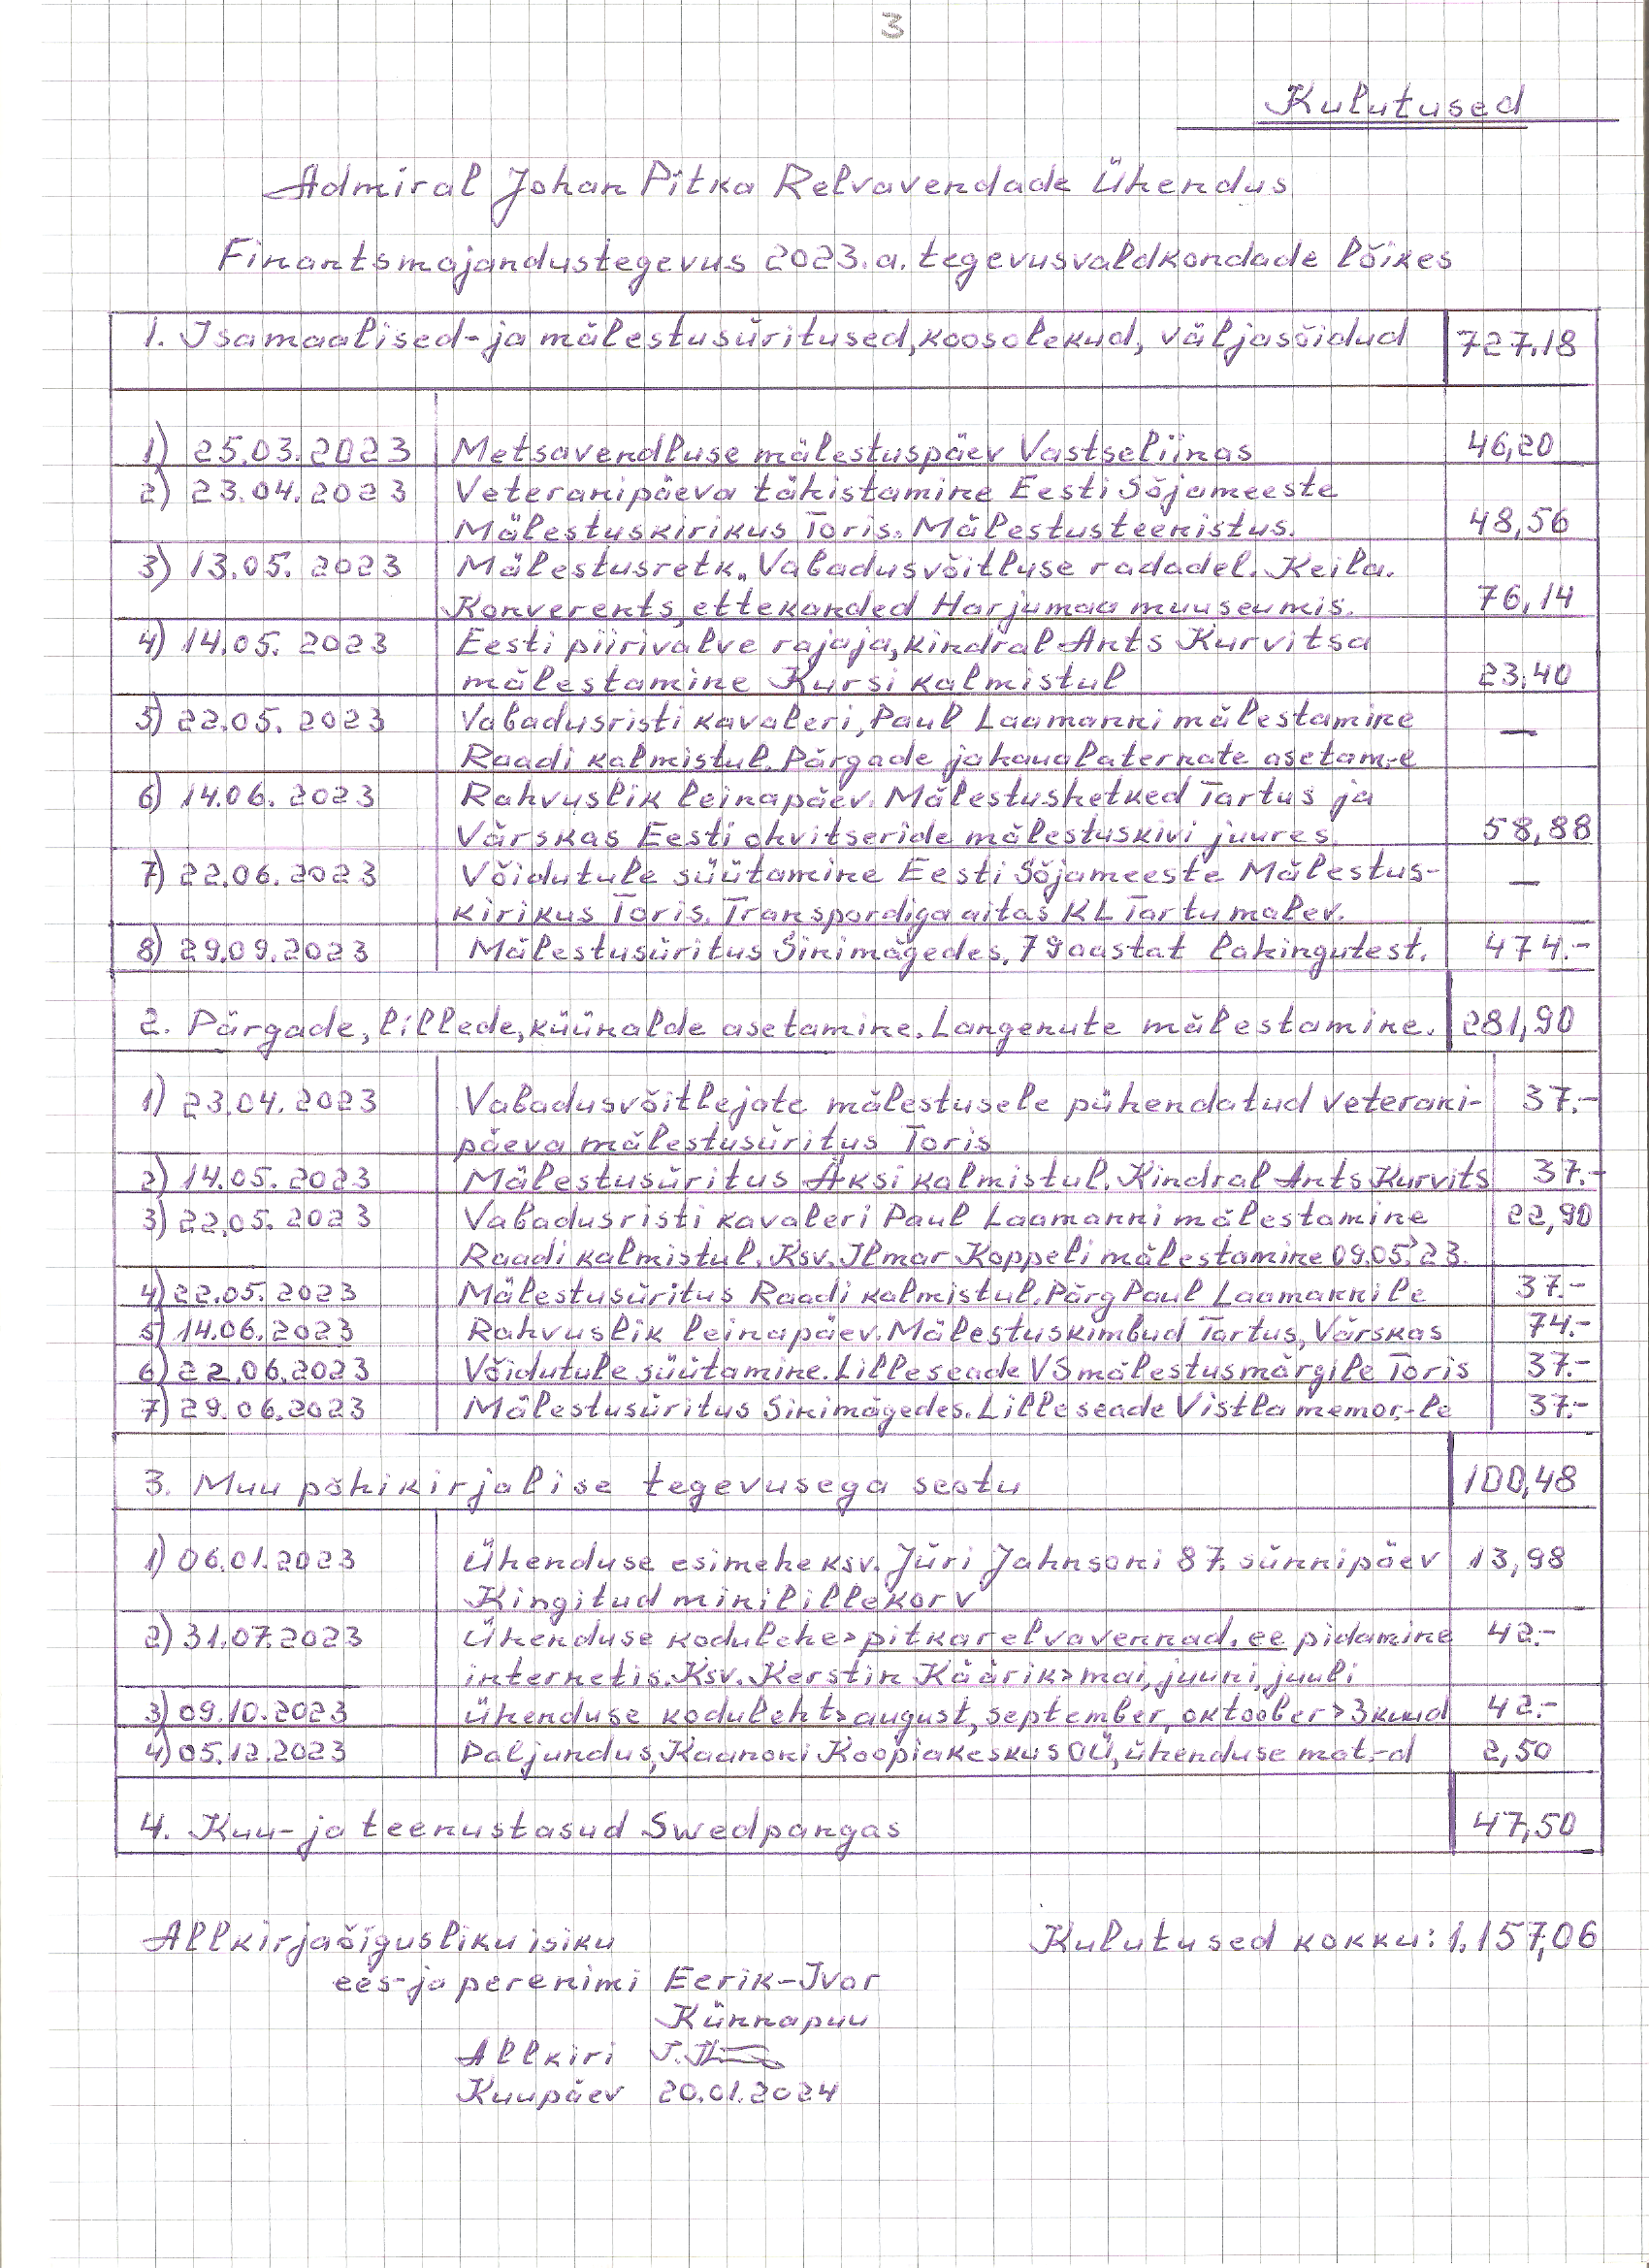 3
Kulutused
Admiral Johan Pitka Relvavendade Ühendus
Finantsmajandustegevus 2023.a. tegevusvaldkondade lõikes
1. Isamaalised-ja mälestusüritused, koosolekud, väljasõidud 727.18
1) 25.03.2023 Metsavendluse mälestuspäev Vastseliinas 46,20
2) 23.04.2023 Veteranipäeva tähistamine Eesti Sõjameeste
Mälestuskirikus Toris. Mälestusteenistus. 48,56
3) 13.05.2023 Mälestusretk „Vabadusvõitluse radadel. Keila.
Konverents, ettekanded Harjumaa muuseumis. 76,14
4) 14.05.2023 Eesti piirivalve rajaja, kindral Ants Kurvitsa
mälestamine Kursi kalmistul 23,40
5) 22.05.2023 Vabadusristi kavaleri, Paul Laamanni mälestamine —
Raadi kalmistul. Pärgade ja haualaternate asetam-e
6) 14.06.2023 Rahvuslik leinapäev. Mälestushetked Tartus ja
Värskas Eesti ohvitseride mälestuskivi juures. 58,88
7) 22.06.2023 Võidutule süütamine Eesti Sõjameeste Mälestus- —
kirikus Toris. Transpordiga aitas KL Tartu malev.
8) 29.09.2023 Mälestusüritus Sinimägedes, 79 aastat lahingutest. 474.-
2. Pärgade, lillede, küünalde asetamine. Langenute mälestamine. 281,90
1) 23.04.2023 Vabadusvõitlejate mälestusele pühendatud veterani- 37.-
päeva mälestusüritus Toris
2) 14.05.2023 Mälestusüritus Äksi kalmistul. Kindral Ants Kurvits 37.-
3) 22.05.2023 Vabadusristi kavaleri Paul Laamanni mälestamine 22,90
Raadi kalmistul. Ksv. Ilmar Koppeli mälestamine 09.05.23.
4) 22.05.2023 Mälestusüritus Raadi kalmistul. Pärg Paul Laamannile 37.-
5) 14.06.2023 Rahvuslik leinapäev. Mälestuskimbud Tartus, Värskas 74.-
6) 22.06.2023 Võidutule süütamine. Lilleseade VS mälestusmärgile Toris 37.-
7) 29.06.2023 Mälestusüritus Sinimägedes. Lilleseade Vistla memor.-le 37.-
3. Muu põhikirjalise tegevusega seotu 100,48
1) 06.01.2023 Ühenduse esimehe ksv. Jüri Jahnsoni 87. sünnipäev 13,98
Kingitud minilillekorv
2) 31.07.2023 Ühenduse kodulehe > pitkarelvavennad.ee pidamine 42.-
internetis. Ksv. Kerstin Käärik > mai, juuni, juuli
3) 09.10.2023 Ühenduse koduleht > august, september, oktoober > 3 kuud 42.-
4) 05.12.2023 Paljundus, Kaanoni Koopiakeskus OÜ, ühenduse mat.-d 2,50
4. Kuu- ja teenustasud Swedpangas 47,50
Allkirjaõigusliku isiku Kulutused kokku: 1.157,06
ees- ja perenimi Eerik-Ivor
Künnapuu
Allkiri
Kuupäev 20.01.2024